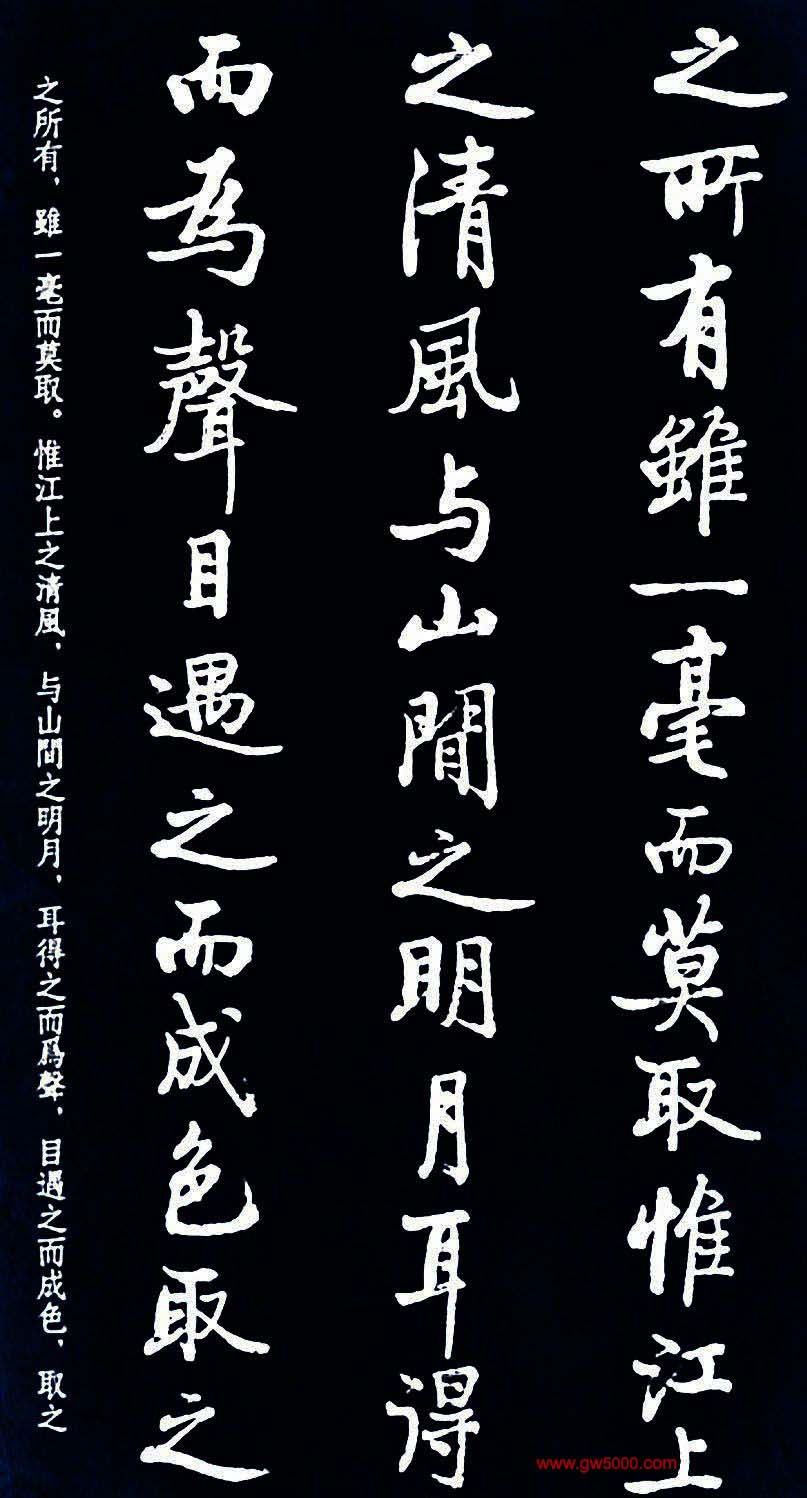 之所有雖一毫而莫取惟江上
之清風与山間之明月耳得
而為聲目遇之而成色取之
之所有，雖一毫而莫取。惟江上之清風，与山間之明月，耳得之而爲聲，目遇之而成色，取之
www.gw5000.com